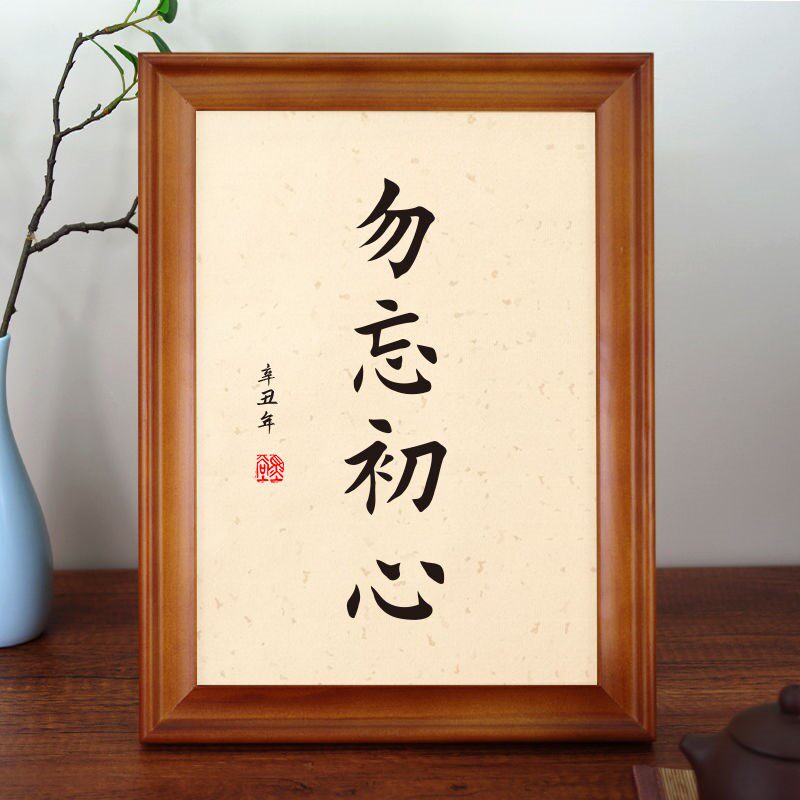 勿忘初心
辛丑年